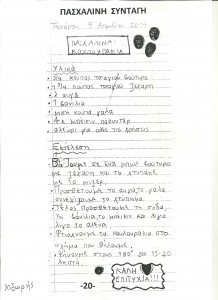 ΠΑΣΧΑΛΙΝΗ ΣΥΝΤΑΓΗ
Τετάρτη 9 Απριλίου 2014
ΠΑΣΧΑΛΙΝΑ
ΚΟΥΛΟΥΡΑΚΙΑ
Υλικά
κούπας τσαγιού βούτυρο
κούπας τσαγιού ζάχαρη
2 αυγά
1 βανίλια
μισή κούπα γάλα
μπέικιν πάουντερ
αλεύρι
Εκτέλεση
Βάζουμε σε ένα μπωλ βούτυρο
με ζάχαρη και τα χτυπάμε
με το μίξερ.
Προσθέτουμε τα αυγά το γάλα
συνεχίζουμε το χτύπημα.
Τέλος προσθέτουμε τη σόδα,
τη βανίλια, το μπέικιν και λίγο
λίγο το αλεύρι.
Φτιάχνουμε τα κουλουράκια στο
σχήμα που θέλουμε.
Ψήνουμε στους 180° για 15-20
λεπτά.
-20-
ΚΑΛΗ
ΕΠΙΤΥΧΙΑ!!!